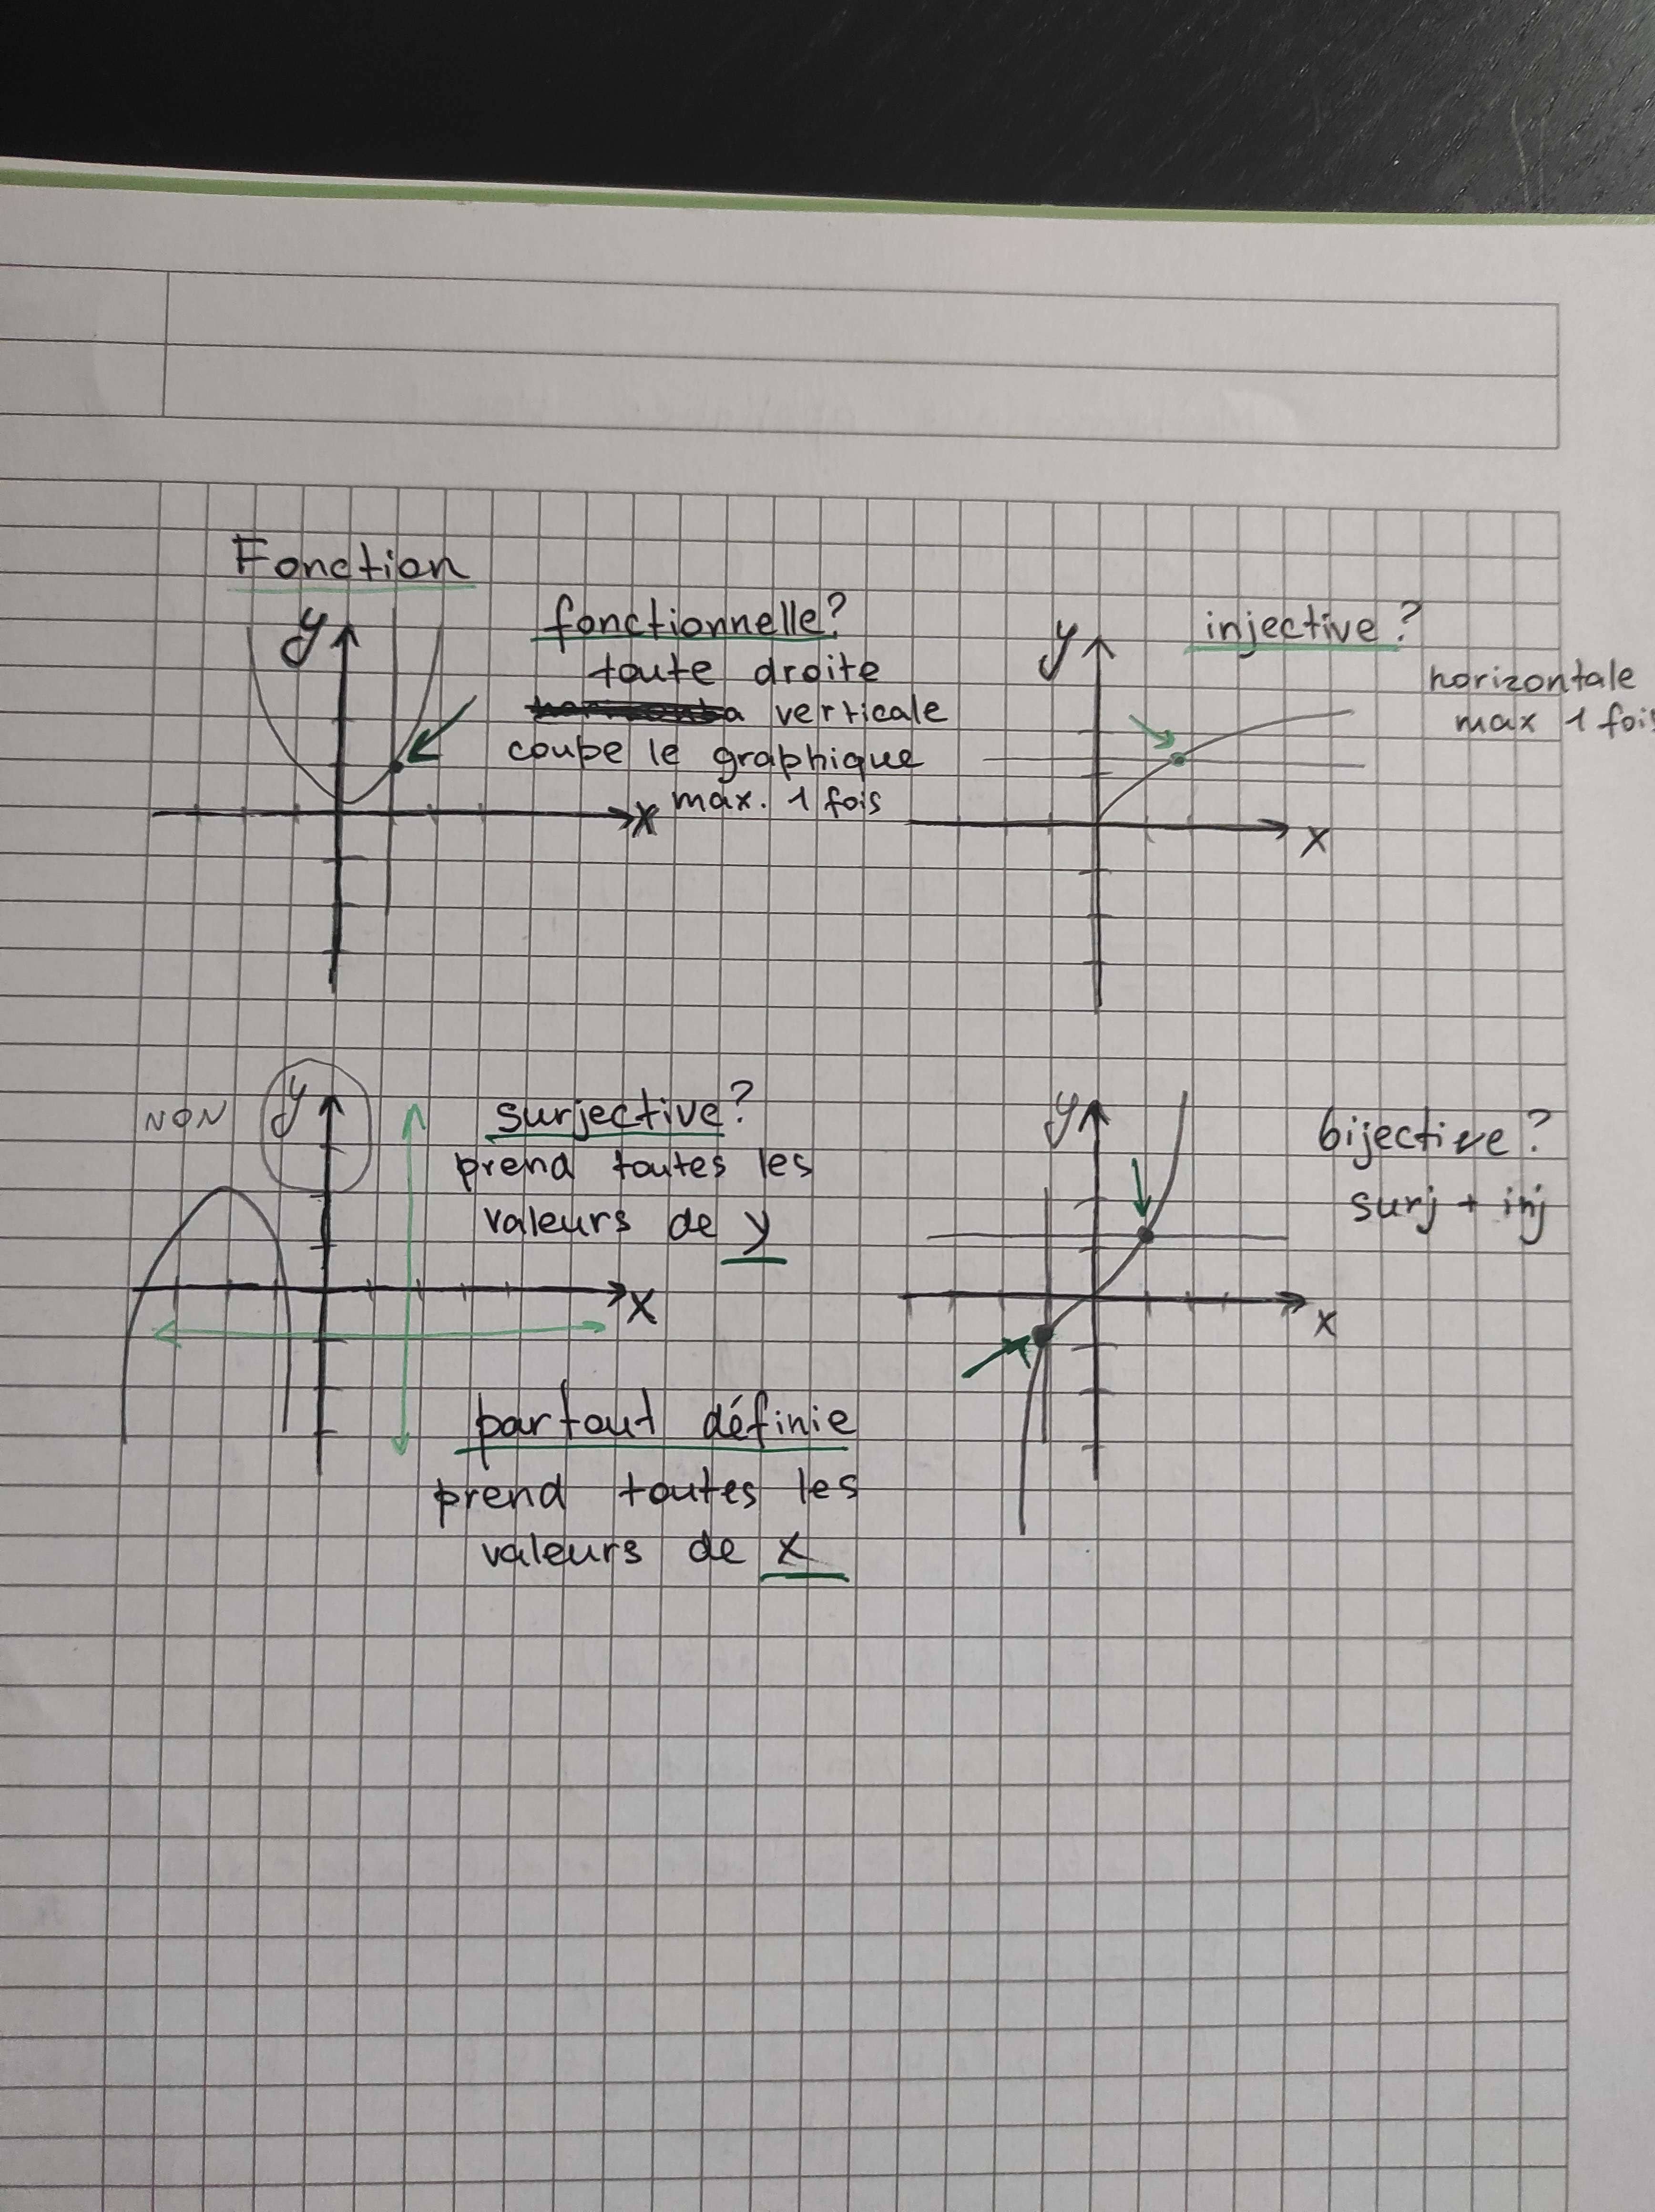 Fonction
y
fonctionnelle?
toute droite
verticale
coupe le graphique
max. 1 fois
x
y
injective?
horizontale
max 1 fois
x
NON
y
surjective?
prend toutes les
valeurs de y
x
partout définie
prend toutes les
valeurs de x
y
bijective?
surj + inj
x